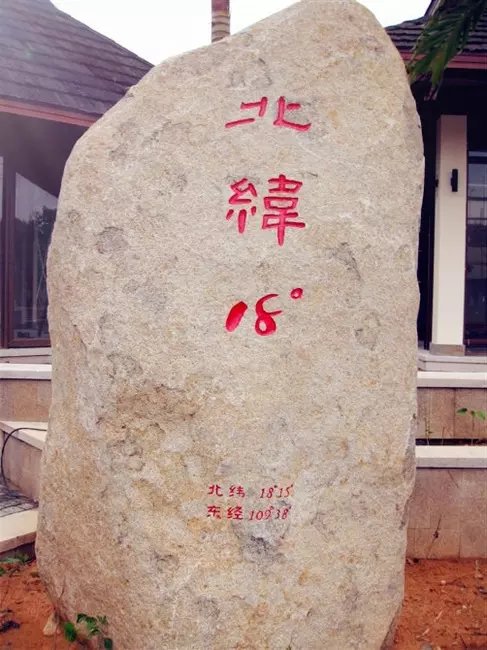 北
緯
18°
北纬 18°15′
东经 109°38′